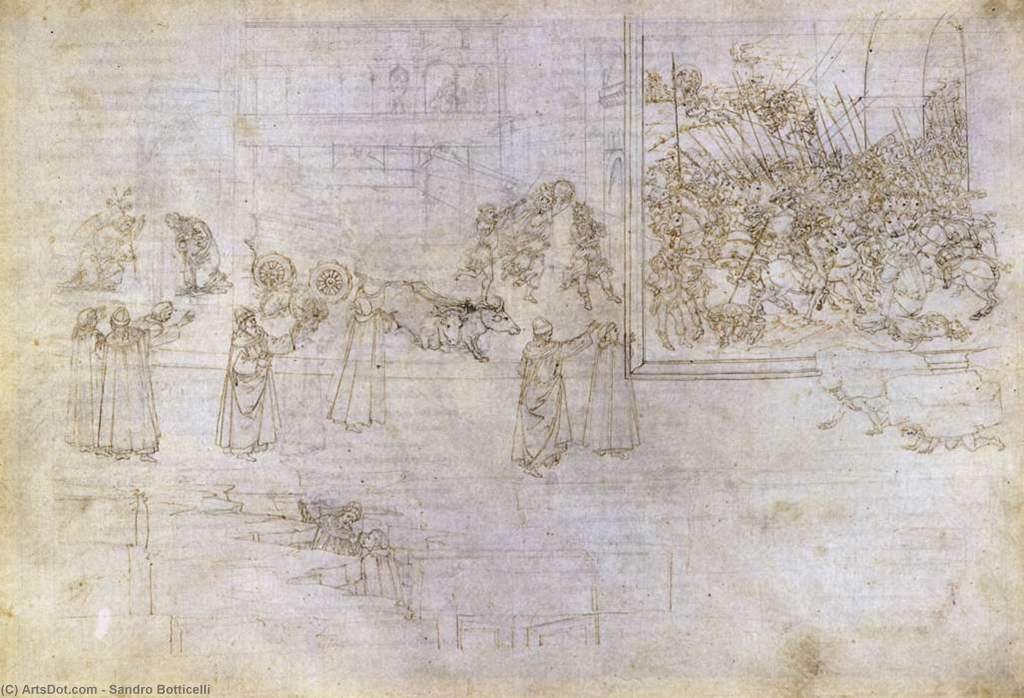 (C) ArtsDot.com - Sandro Botticelli